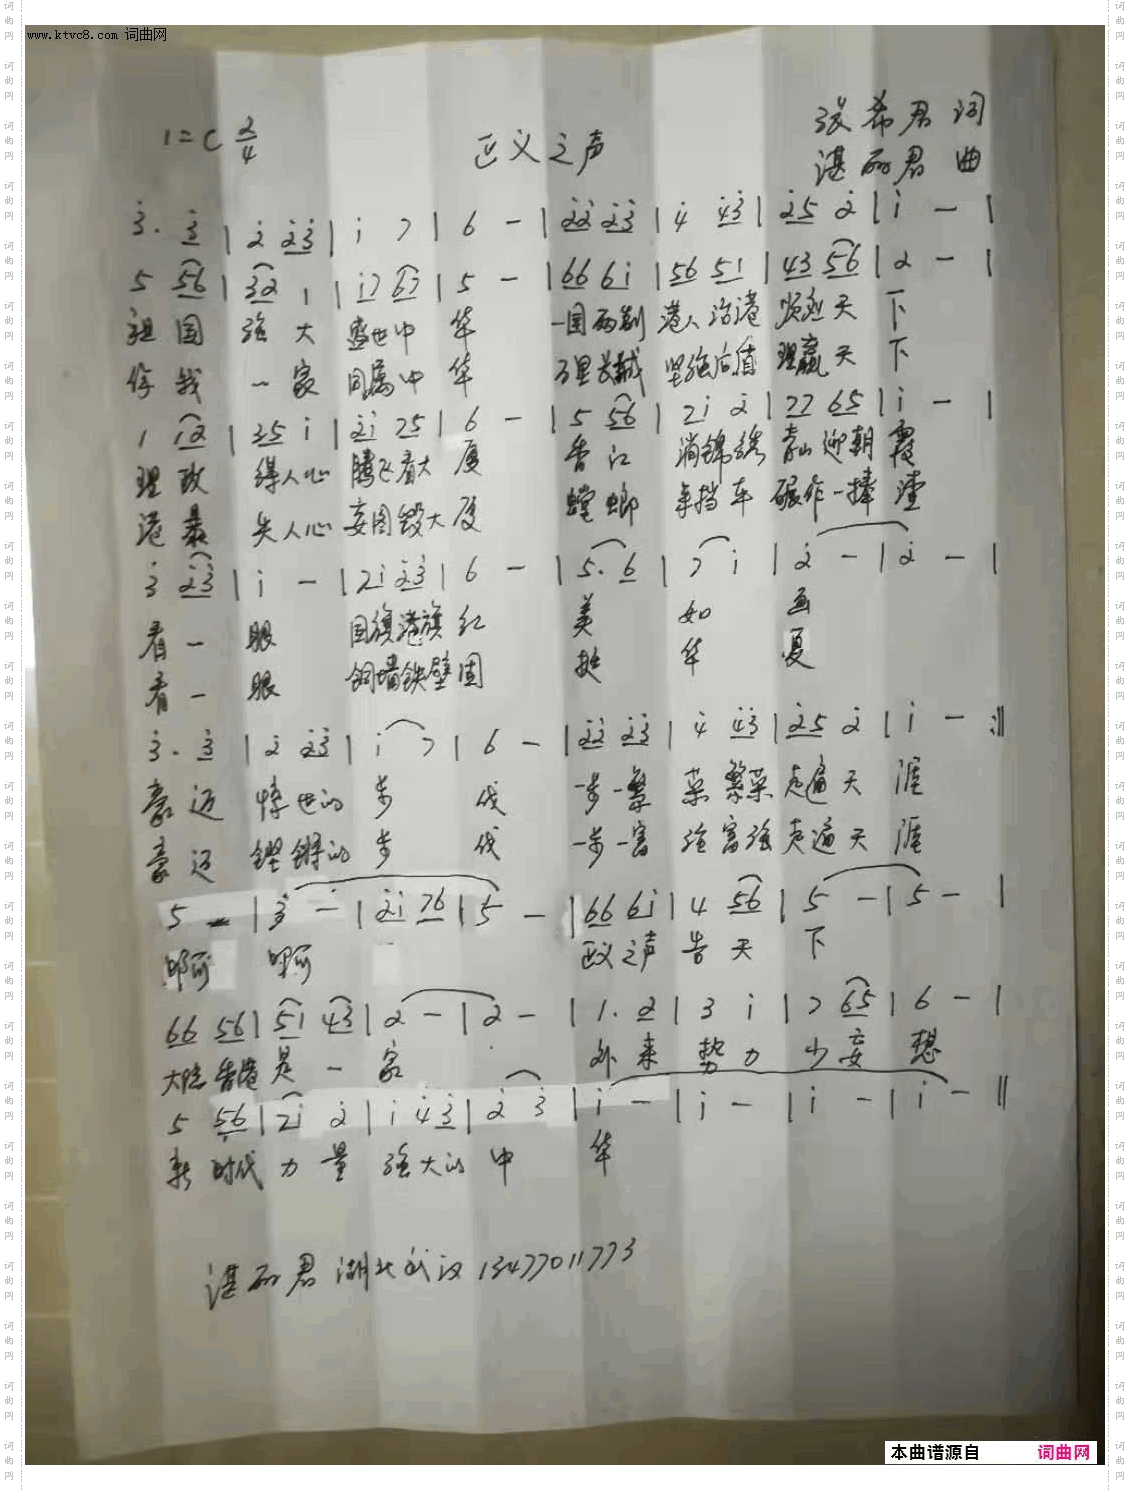 www.ktvc8.com 词曲网
1=C 2/4 正义之声 张希君 词
湛丽君 曲
3̇. 3̇ | 2̇ 2̇3̇ | i 7 | 6 - | 2̇2̇ 2̇3̇ | 4̇ 4̇3̇ | 2̇5 2̇ | i - |
5 56 | 32 1 | i7 67 | 5 - | 66 6i | 56 51 | 43 56 | 2 - |
祖国 强大 盛世中华 一国两制 港人治港 顺应天下
你我 一家 同属中华 万里长城 坚强后盾 理赢天下
1 12 | 35 i | 2̇i 25 | 6 - | 5 56 | 7i 2̇ | 77 65 | i - |
理政 得人心 腾飞看大厦 香江 绣锦 青山迎朝霞
港暴 失人心 妄图毁大厦 螳螂 挡车 碾作一捧渣
3̇ 2̇3̇ | i - | 7i 2̇3̇ | 6 - | 5. 6 | 7 i | 2̇ - | 2̇ - |
看一眼 国旗港旗红 美如画
看一眼 铜墙铁壁固 挺华夏
3̇. 3̇ | 2̇ 2̇3̇ | i 7 | 6 - | 2̇2̇ 2̇3̇ | 4̇ 4̇3̇ | 2̇5 2̇ | i - :‖
豪迈 的步伐 一步一繁荣 繁荣走遍天涯
豪迈 铿锵的步伐 一步一富强 富强走遍天涯
5 - | 3̇ - | 2̇i 76 | 5 - | 66 6i | 4 56 | 5 - | 5 - |
啊 啊 正义之声告天下
66 56 | 51 43 | 2 - | 2 - | 1. 2 | 3 i | 7 65 | 6 - |
大陆香港是一家 外来势力少妄想
5 56 | 7i 2̇ | i 4̇3̇ | 2̇ 3̇ | i - | i - | i - | i - ‖
新时代力量 强大的中华
湛丽君 湖北武汉 13477011773
本曲谱源自 词曲网